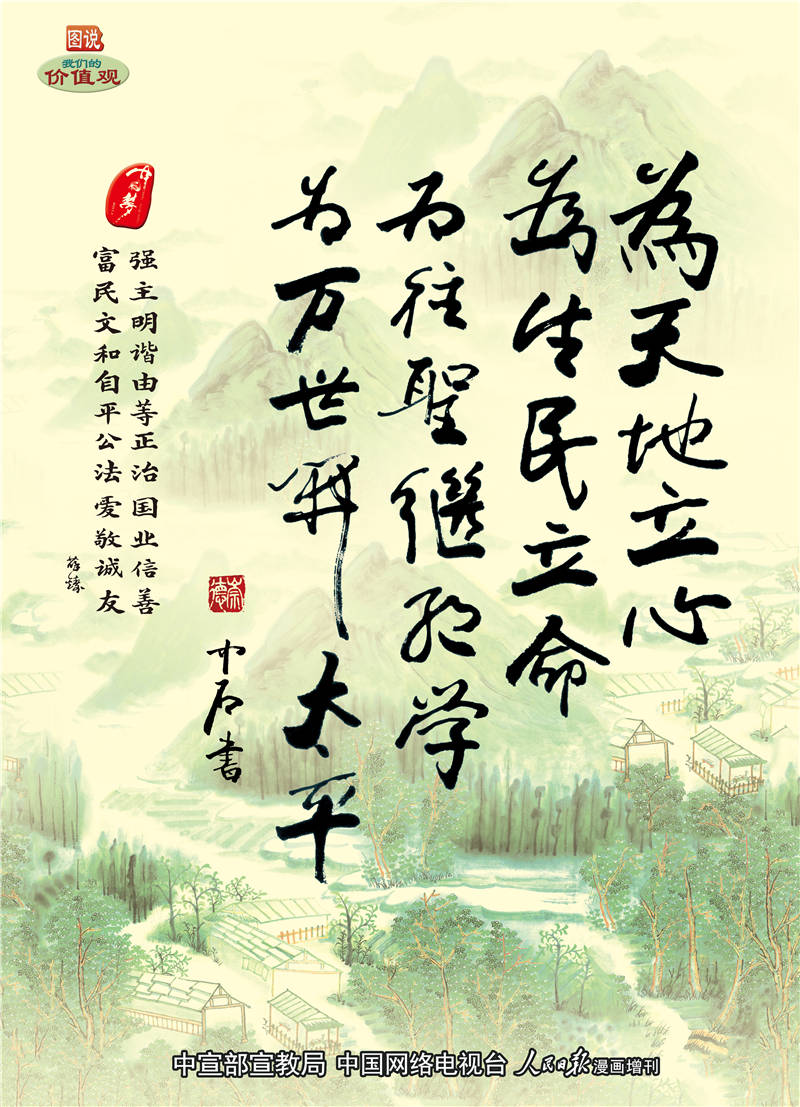 图说
我们的
价值观
為天地立心
為生民立命
为往聖繼绝学
为万世開太平
崇德
中石書
中国梦
富强
民主
文明
和谐
自由
平等
公正
法治
爱国
敬业
诚信
友善
中宣部宣教局 中国网络电视台 人民日报漫画增刊